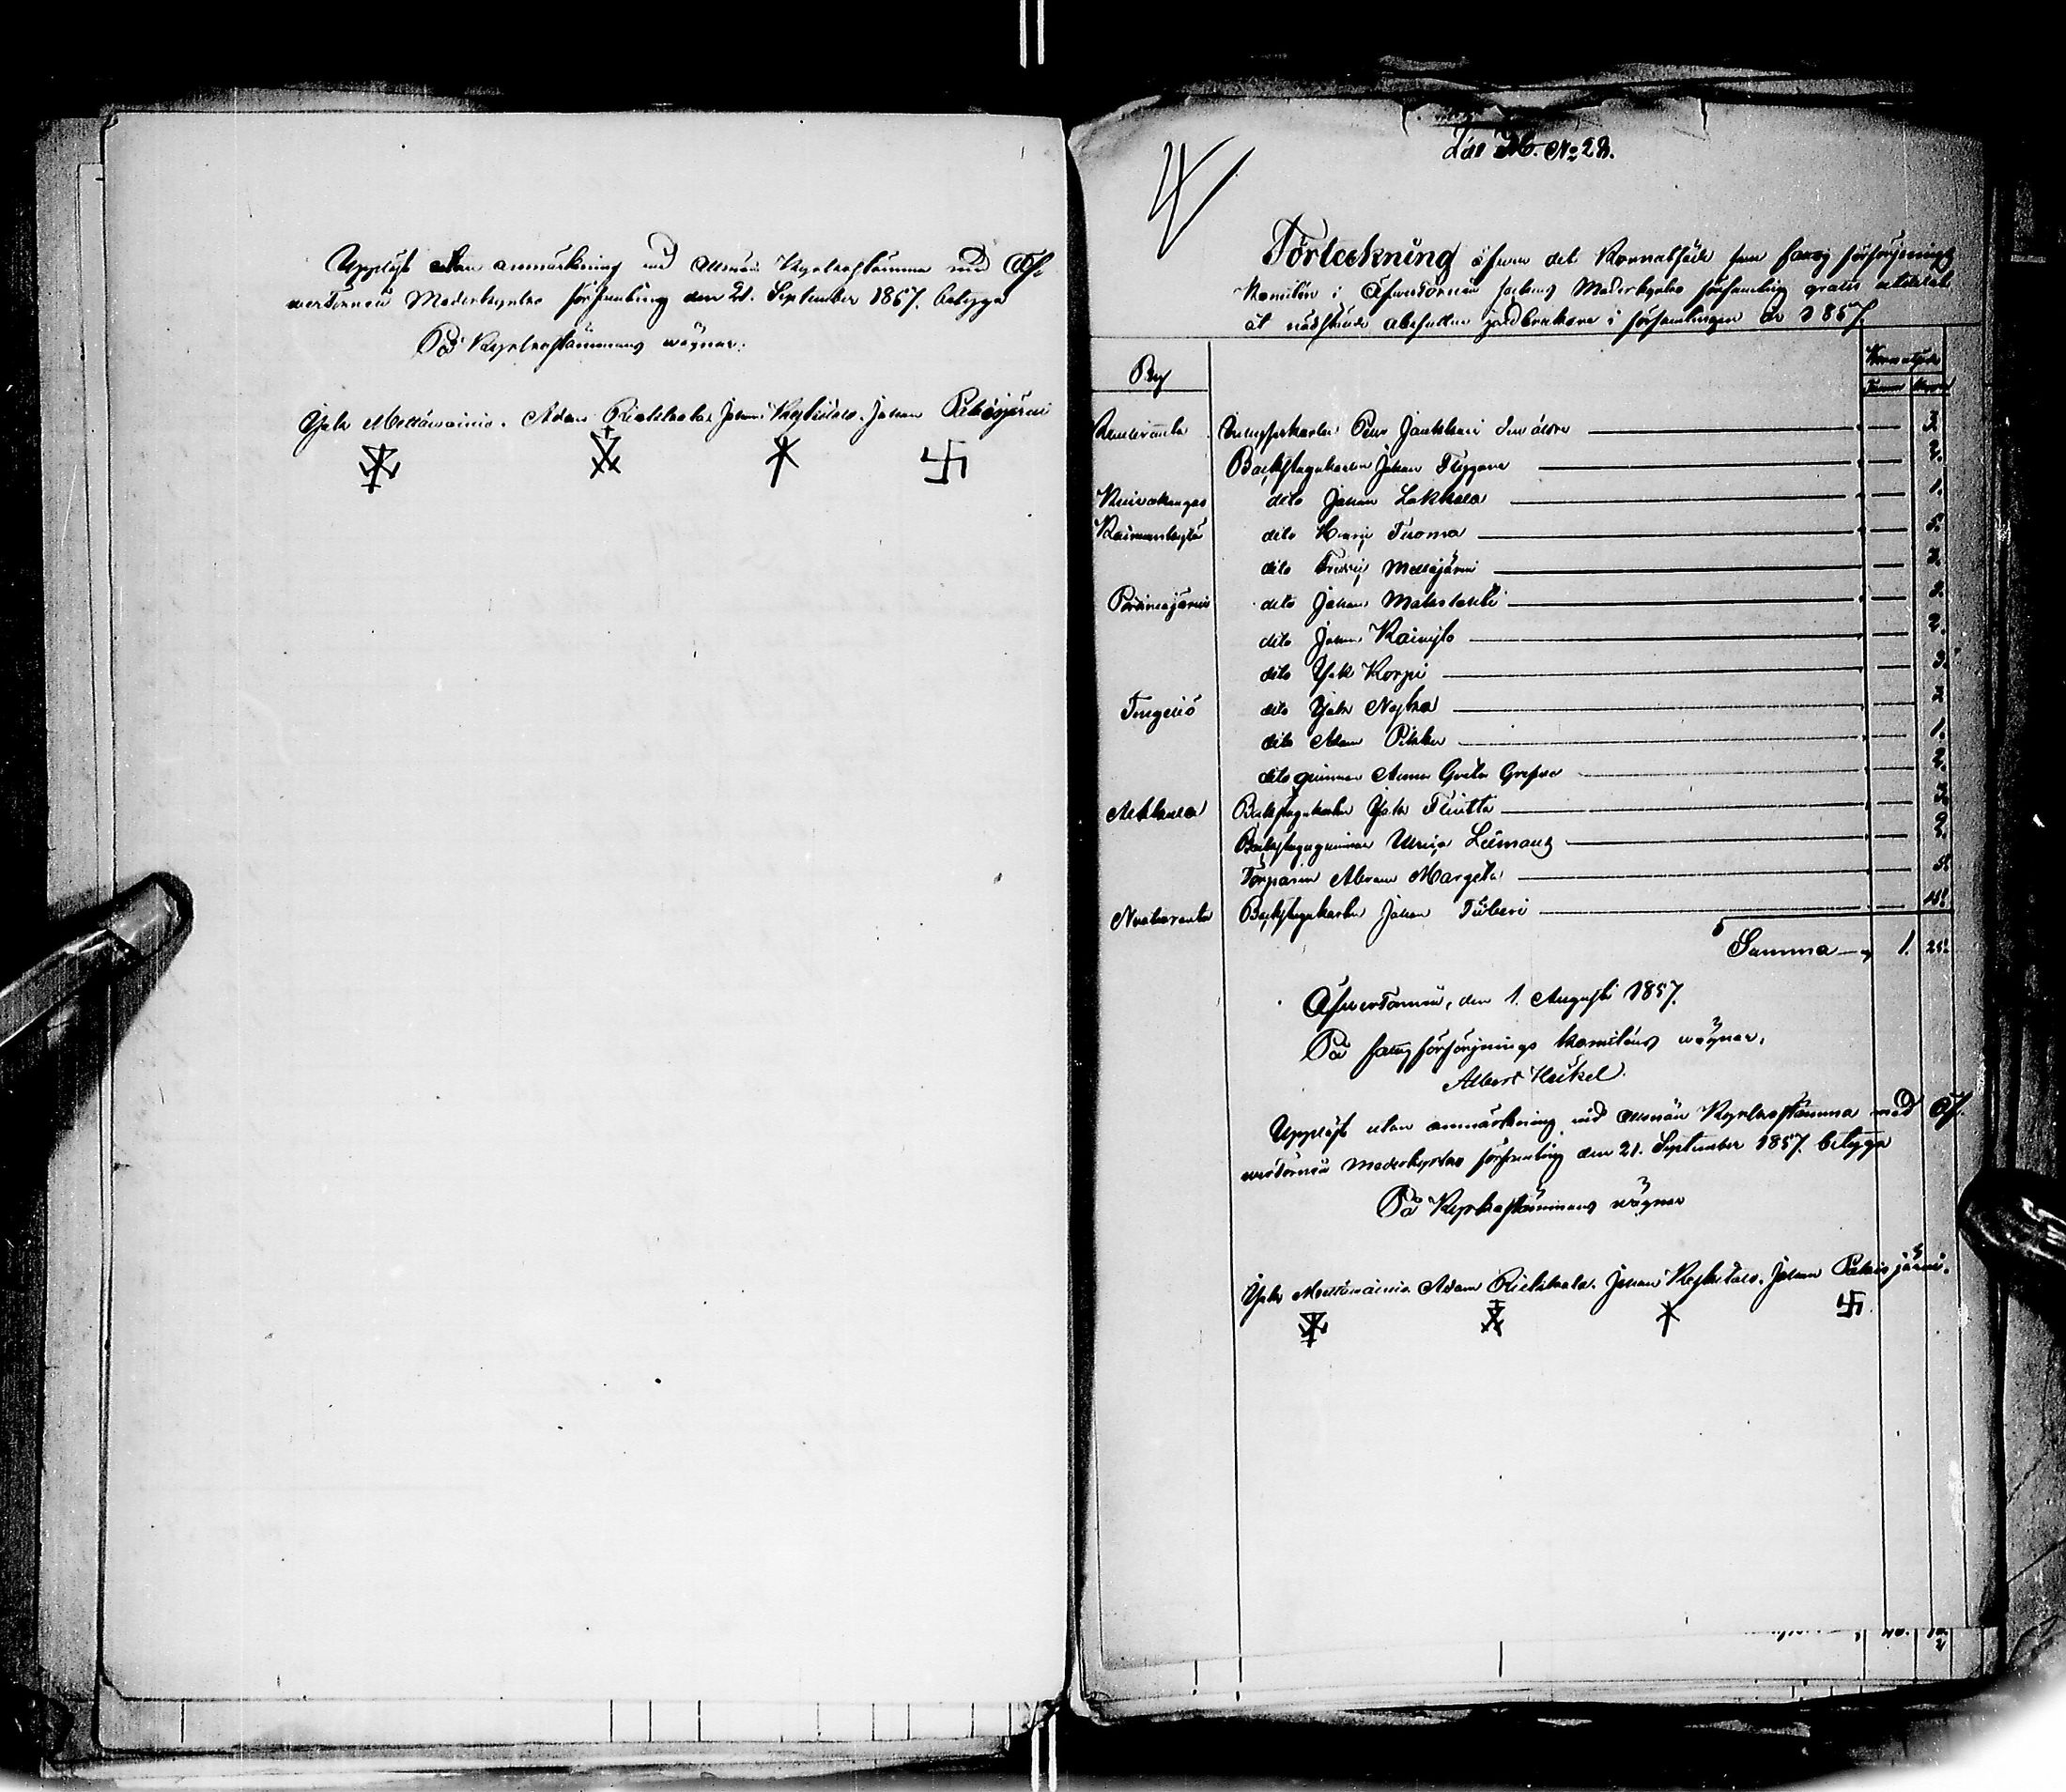 Uppläst utan anmärkning vid allmän Kyrkostämma med Öf-
vertorneå Moderkyrko församling den 21. September 1857. betyga
På Kyrkostämmans vägnar:
Isak Mellämainio. Adam Riekkola. Johan Kyläsalo. Johan Pakisjärvi
Litt No 28.
Förteckning öfver det Kornutsäde som fattigförsörjnings
Komitén i Öfvertorneå sockens Moderkyrko församling gratis utdelat
åt nödstälda jordbrukare i församlingen år 1857.
By
Kornutsäde
Tunnor Kappar
Petter den äldre 3.
Backstugukarlen Johan 2.
Kuivakangas dito Johan Lakkala 1.
Kaimankylä dito Henrik Tuoma 5.
dito Fredrik Mellajärvi 3.
Portimojärvi dito Johan 3.
dito Johan 2.
dito Isak Korpi 3.
Tengeliö dito Isak Nykra 2
dito Adam Pikku 1.
dito qvinnan Anna Greta 2.
Alkkula Backstugukarlen Isak 3.
Backstuguqvinnan Ulrica 2.
Torparen Abram Margeta
Nuotioranta Backstugukarlen Johan
Summa 1. 25.
Öfvertorneå, den 1. Augusti 1857.
På fattigförsörjnings komiténs vägnar,
Albert Heikel.
Uppläst utan anmärkning vid allmän Kyrkostämma med Öf-
vertorneå Moderkyrko församling den 21. September 1857. betyga
På Kyrkostämmans vägnar
Isak Mellämainio. Adam Riekkola. Johan Kyläsalo. Johan Pakisjärvi.